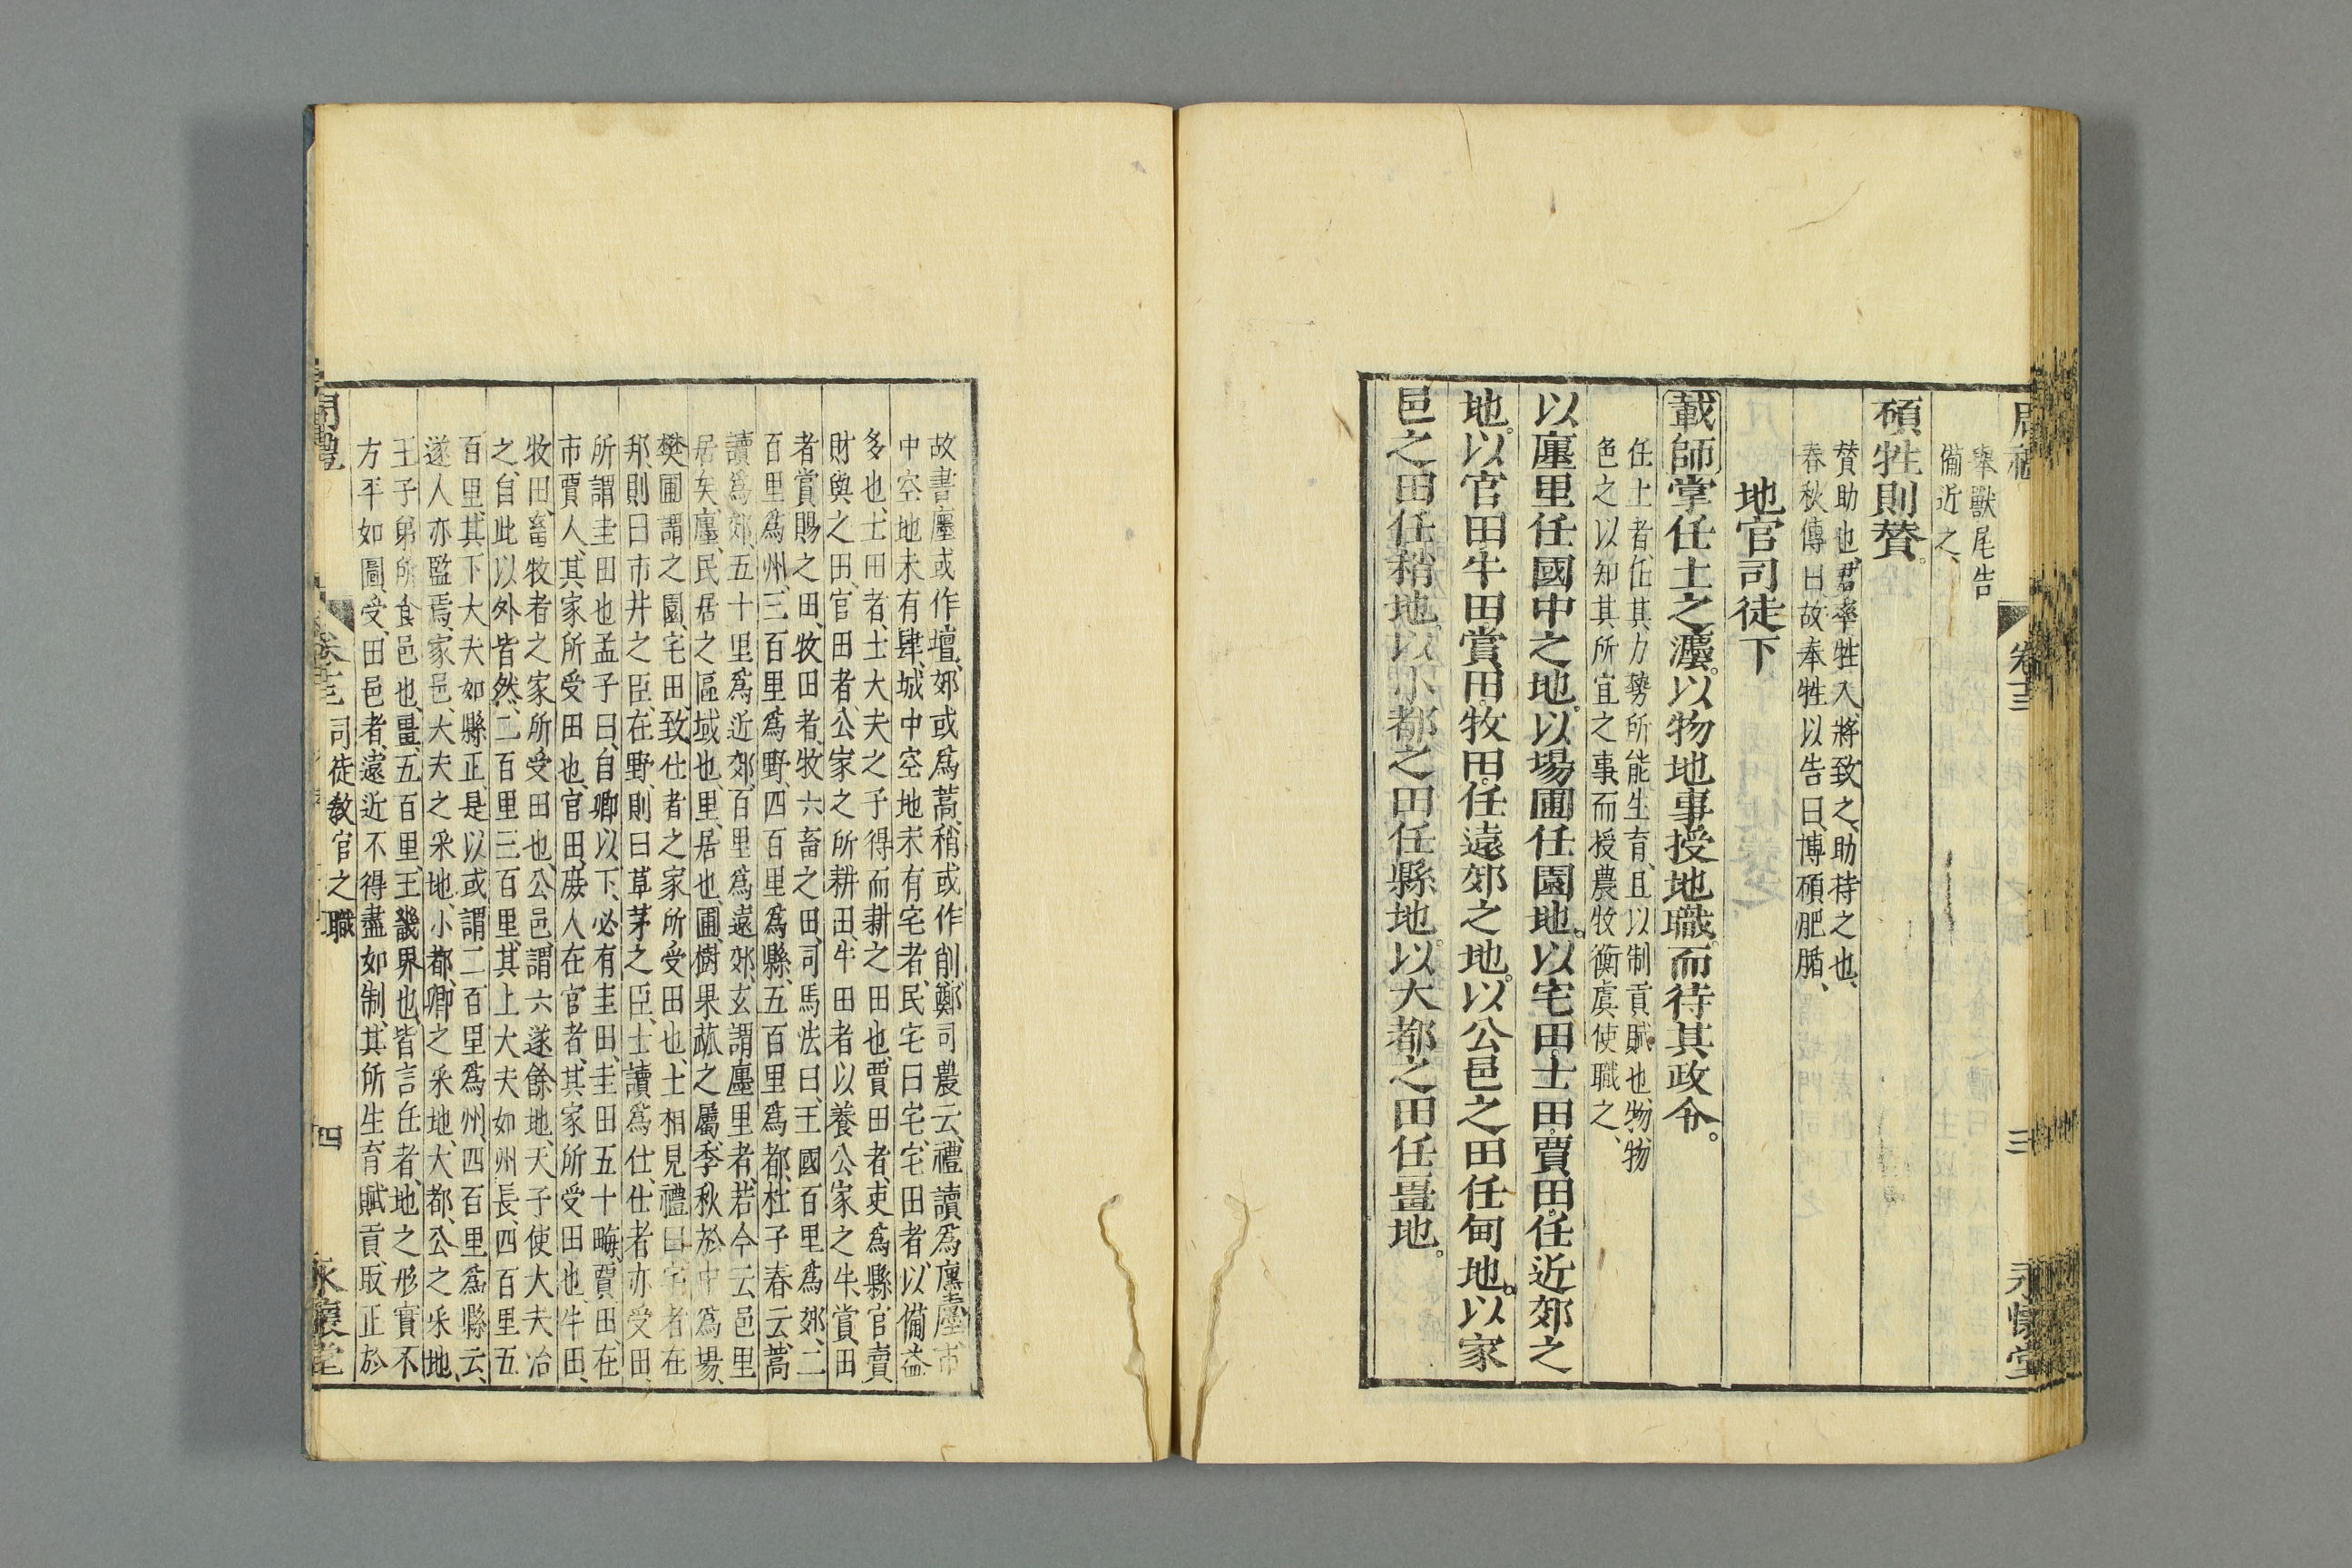 舉獸尾告
備近之、
碩牲則贊。
贊助也、君牽牲入、將致之、助持之也、
春秋傳曰、故奉牲以告曰、博碩肥腯、
地官司徒下
載師掌任土之灋。以物地事授地職。而待其政令。
任土者、任其力勢所能生育、且以制貢賦也、物物
色之以知其所宜之事而授農牧衡虞使職之、
以廛里任國中之地。以場圃任園地。以宅田士田賈田。任近郊之
地。以官田牛田賞田牧田。任遠郊之地。以公邑之田任甸地。以家
邑之田任稍地。以小都之田任縣地。以大都之田任畺地。
卷十三
三
永懷堂
故書廛或作壇、郊或爲蒿、稍或作削、鄭司農云、禮讀爲廛、廛、市
中空地未有肆、城中空地未有宅者、民宅曰宅、宅田者、以備益
多也、士田者、士大夫之子得而耕之田也、賈田者、吏爲縣官賣
財與之田、官田者、公家之所耕田、牛田者以養公家之牛、賞田
者賞賜之田、牧田者、牧六畜之田、司馬法曰、王國百里爲郊、二
百里爲州、三百里爲野、四百里爲縣、五百里爲都、杜子春云、蒿
讀爲郊、五十里爲近郊、百里爲遠郊、玄謂廛里者、若今云邑里
居矣、廛、民居之區域也、里、居也、圃、樹果蓏之屬、季秋於中爲場、
樊圃謂之園、宅田、致仕者之家所受田也、士相見禮曰、宅者在
邦、則曰市井之臣、在野、則曰草茅之臣、士讀爲仕、仕者亦受田、
所謂圭田也、孟子曰、自卿以下、必有圭田、圭田五十畮、賈田、在
市賈人、其家所受田也、官田、庶人在官者、其家所受田也、牛田、
牧田、畜牧者之家所受田也、公邑、謂六遂餘地、天子使大夫治
之、自此以外皆然、二百里三百里、其上大夫如州長、四百里五
百里、其下大夫如縣正、是以或謂二百里爲州、四百里爲縣云、
遂人亦監焉、家邑、大夫之采地、小都、卿之采地、大都、公之采地、
王子弟所食邑也、畺、五百里、王畿界也、皆言任者、地之形實不
方平如圖、受田邑者、遠近不得盡如制、其所生育賦貢、取正於
周禮
卷十三
司徒敎官之職
四
永懷堂